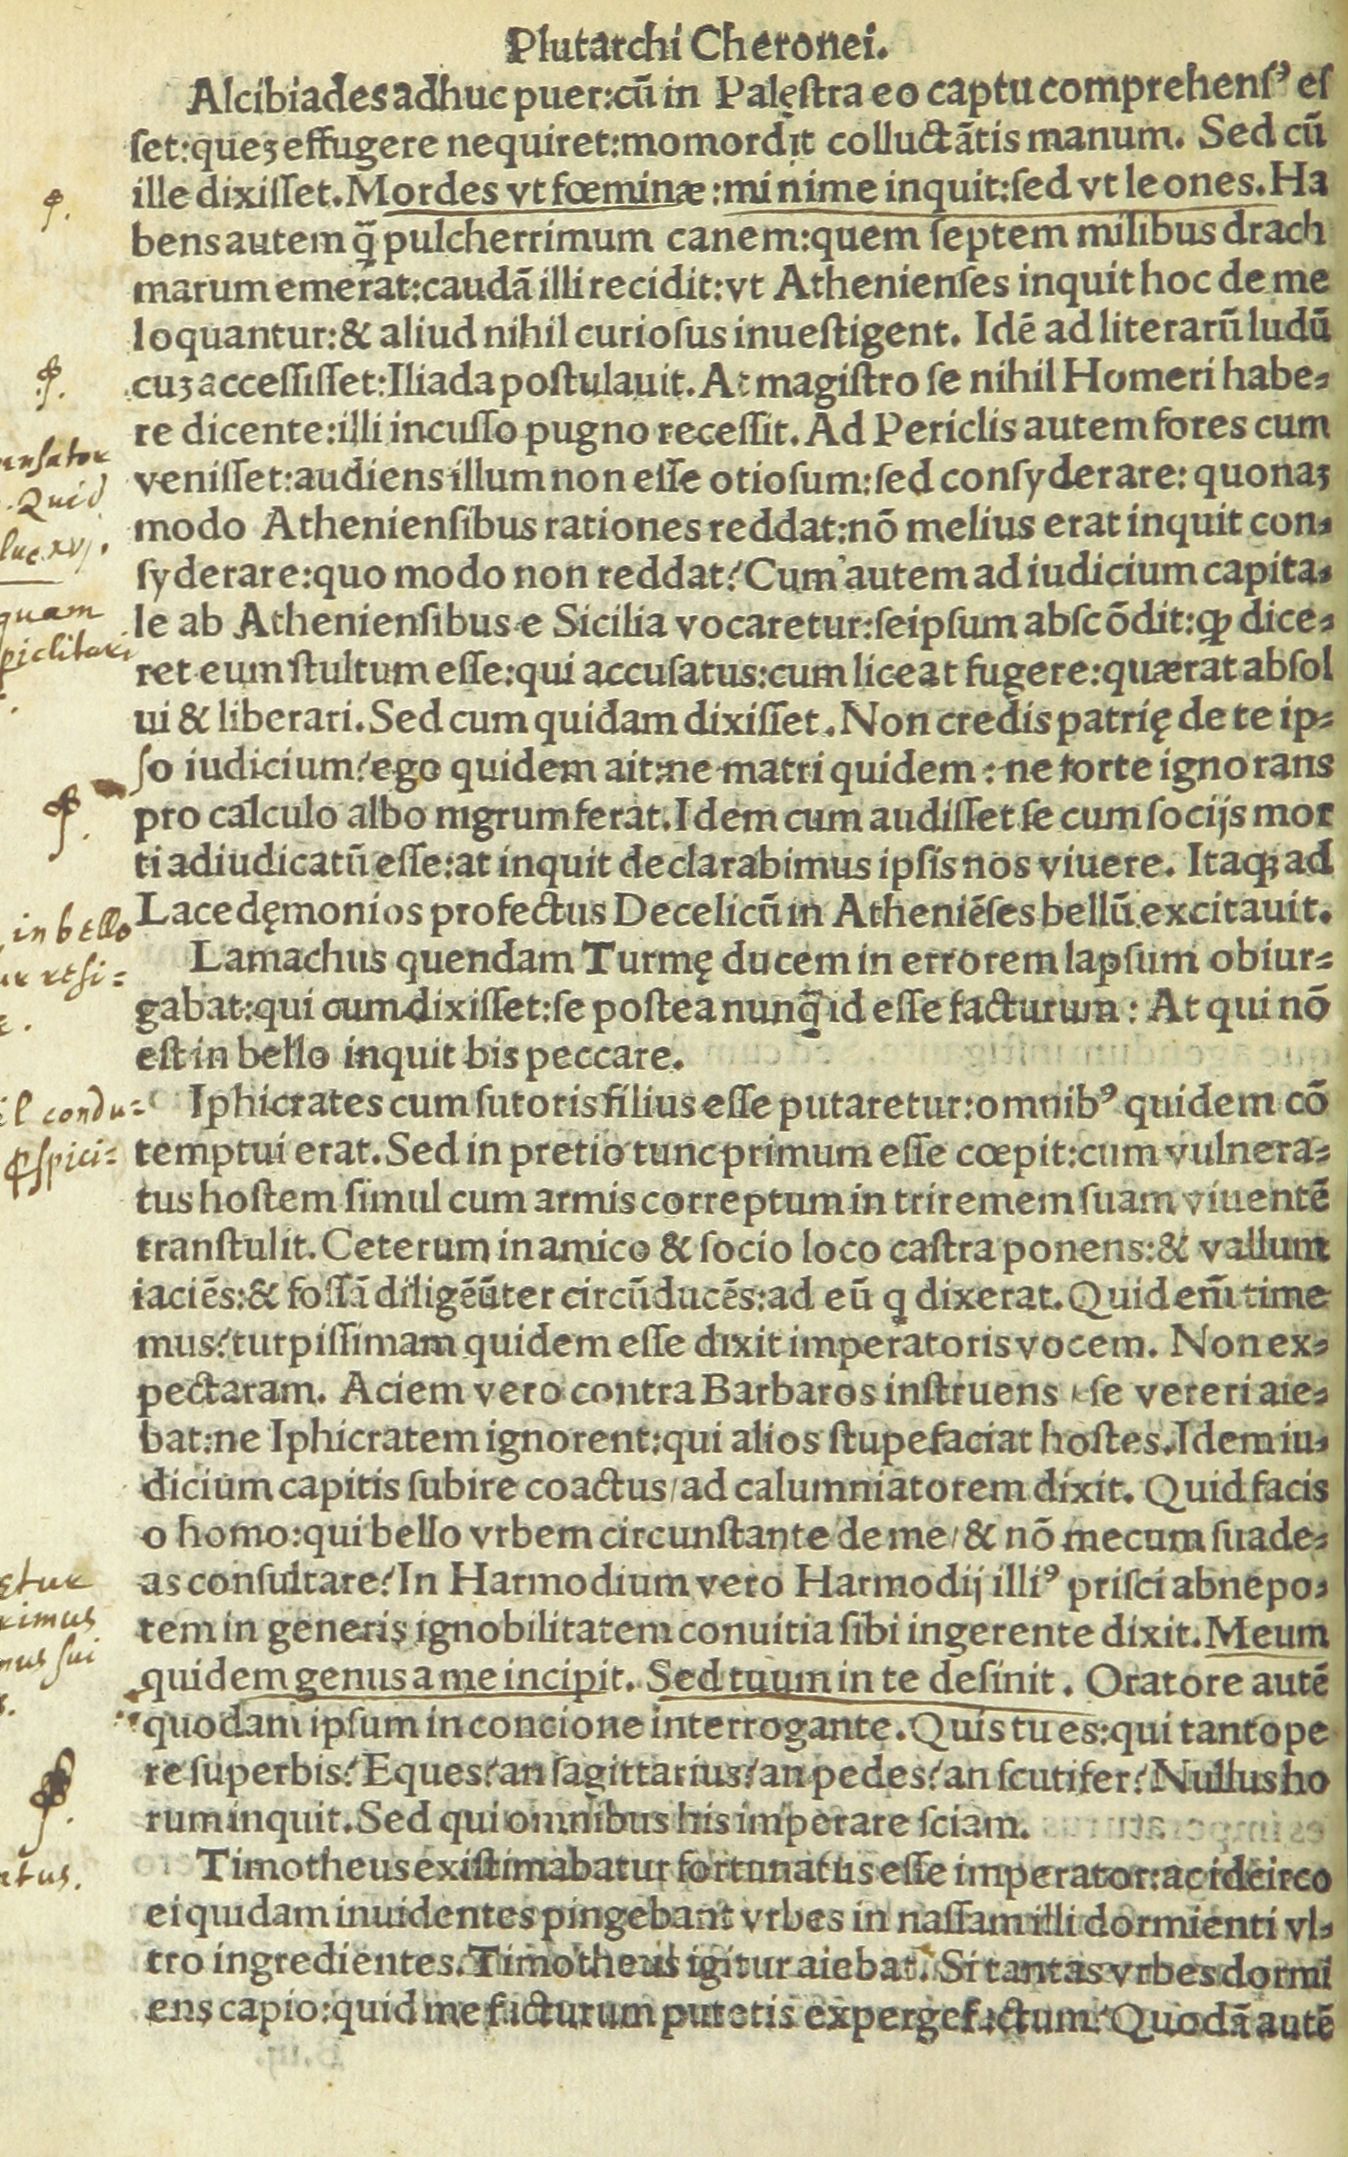 Plutarchi Cheronei.
Alcibiades adhuc puer:cũ in Palęstra eo captu comprehenſꝰ eſ
ſet:queꝫ effugere nequiret:momordit colluctãtis manum. Sed cũ
ꝓ.
ille dixiſſet. Mordes vt fœminæ:minime inquit:ſed vt leones. Ha
bens autem q̃ pulcherrimum canem:quem ſeptem milibus drach
marum emerat:caudã illi recidit:vt Athenienſes inquit hoc de me
loquantur:& aliud nihil curioſus inueſtigent. Idẽ ad literarũ ludũ
cuꝫ acceſſiſſet:Iliada poſtulauit. At magiſtro ſe nihil Homeri habe⸗
re dicente:illi incuſſo pugno receſſit. Ad Periclis autem fores cum
veniſſet:audiens illum non eſſe otioſum:ſed conſyderare: quonaꝫ
Quid
modo Athenienſibus rationes reddat:nõ melius erat inquit con⸗
luc. xvj.
ſyderare:quo modo non reddat? Cum autem ad iudicium capita⸗
quam
le ab Athenienſibus e Sicilia vocaretur:ſeipſum abſcõdit:ꝙ dice⸗
ret eum ſtultum eſſe:qui accuſatus:cum liceat fugere:quærat abſol
ui & liberari. Sed cum quidam dixiſſet. Non credis patrię de te ip⸗
ſo iudicium? ego quidem ait:ne matri quidem: ne forte ignorans
pro calculo albo nigrum ferat. Idem cum audiſſet ſe cum ſocijs mor
ti adiudicatũ eſſe:at inquit declarabimus ipſis nos viuere. Itaqꝫ ad
in bello
Lacedęmonios profectus Decelicũ in Atheniẽſes bellũ excitauit.
Lamachus quendam Turmę ducem in errorem lapſum obiur⸗
gabat:qui cum dixiſſet:ſe poſtea nunq̃ id eſſe facturum: At qui nõ
eſt in bello inquit bis peccare.
Iphicrates cum ſutoris filius eſſe putaretur:omnibꝰ quidem cõ
temptui erat. Sed in pretio tunc primum eſſe cœpit:cum vulnera⸗
tus hoſtem ſimul cum armis correptum in triremem ſuam viuentẽ
tranſtulit. Ceterum in amico & ſocio loco caſtra ponens:& vallum
iaciẽs:& foſſã diligẽũter circũducẽs:ad eũ q dixerat. Quid em̃ time
mus? turpiſſimam quidem eſſe dixit imperatoris vocem. Non ex⸗
pectaram. Aciem vero contra Barbaros inſtruens ſe vereri aie⸗
bat:ne Iphicratem ignorent:qui alios ſtupefaciat hoſtes. Idem iu⸗
dicium capitis ſubire coactus/ad calumniatorem dixit. Quid facis
o homo:qui bello vrbem circunſtante de me/& nõ mecum ſuade⸗
as conſultare? In Harmodium vero Harmodij illiꝰ priſci abnepo⸗
tem in generis ignobilitatem conuitia ſibi ingerente dixit. Meum
quidem genus a me incipit. Sed tuum in te deſinit. Oratore autẽ
quodam ipſum in concione interrogante. Quis tu es:qui tantope
re ſuperbis? Eques? an ſagittarius? an pedes? an ſcutifer? Nullus ho
rum inquit. Sed qui omnibus his imperare ſciam.
Timotheus exiſtimabatur fortunatus eſſe imperator:ac idcirco
ei quidam inuidentes pingebant vrbes in naſſam illi dormienti vl⸗
tro ingredientes. Timotheus igitur aiebat. Si tantas vrbes dormi
ens capio:quid me facturum putetis expergefactum? Quodã autẽ